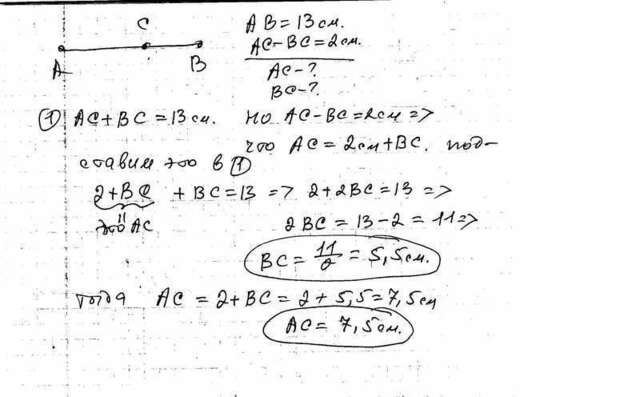 C
A B
AB = 13 см.
AC - BC = 2 см.
AC - ?
BC - ?
① AC + BC = 13 см. Но AC - BC = 2 см =>
что AC = 2 см + BC. Под-
ставим это в ①
2 + BC + BC = 13 => 2 + 2BC = 13 =>
это AC
2BC = 13 - 2 = 11 =>
BC = 11/2 = 5,5 см.
тогда AC = 2 + BC = 2 + 5,5 = 7,5 см
AC = 7,5 см.